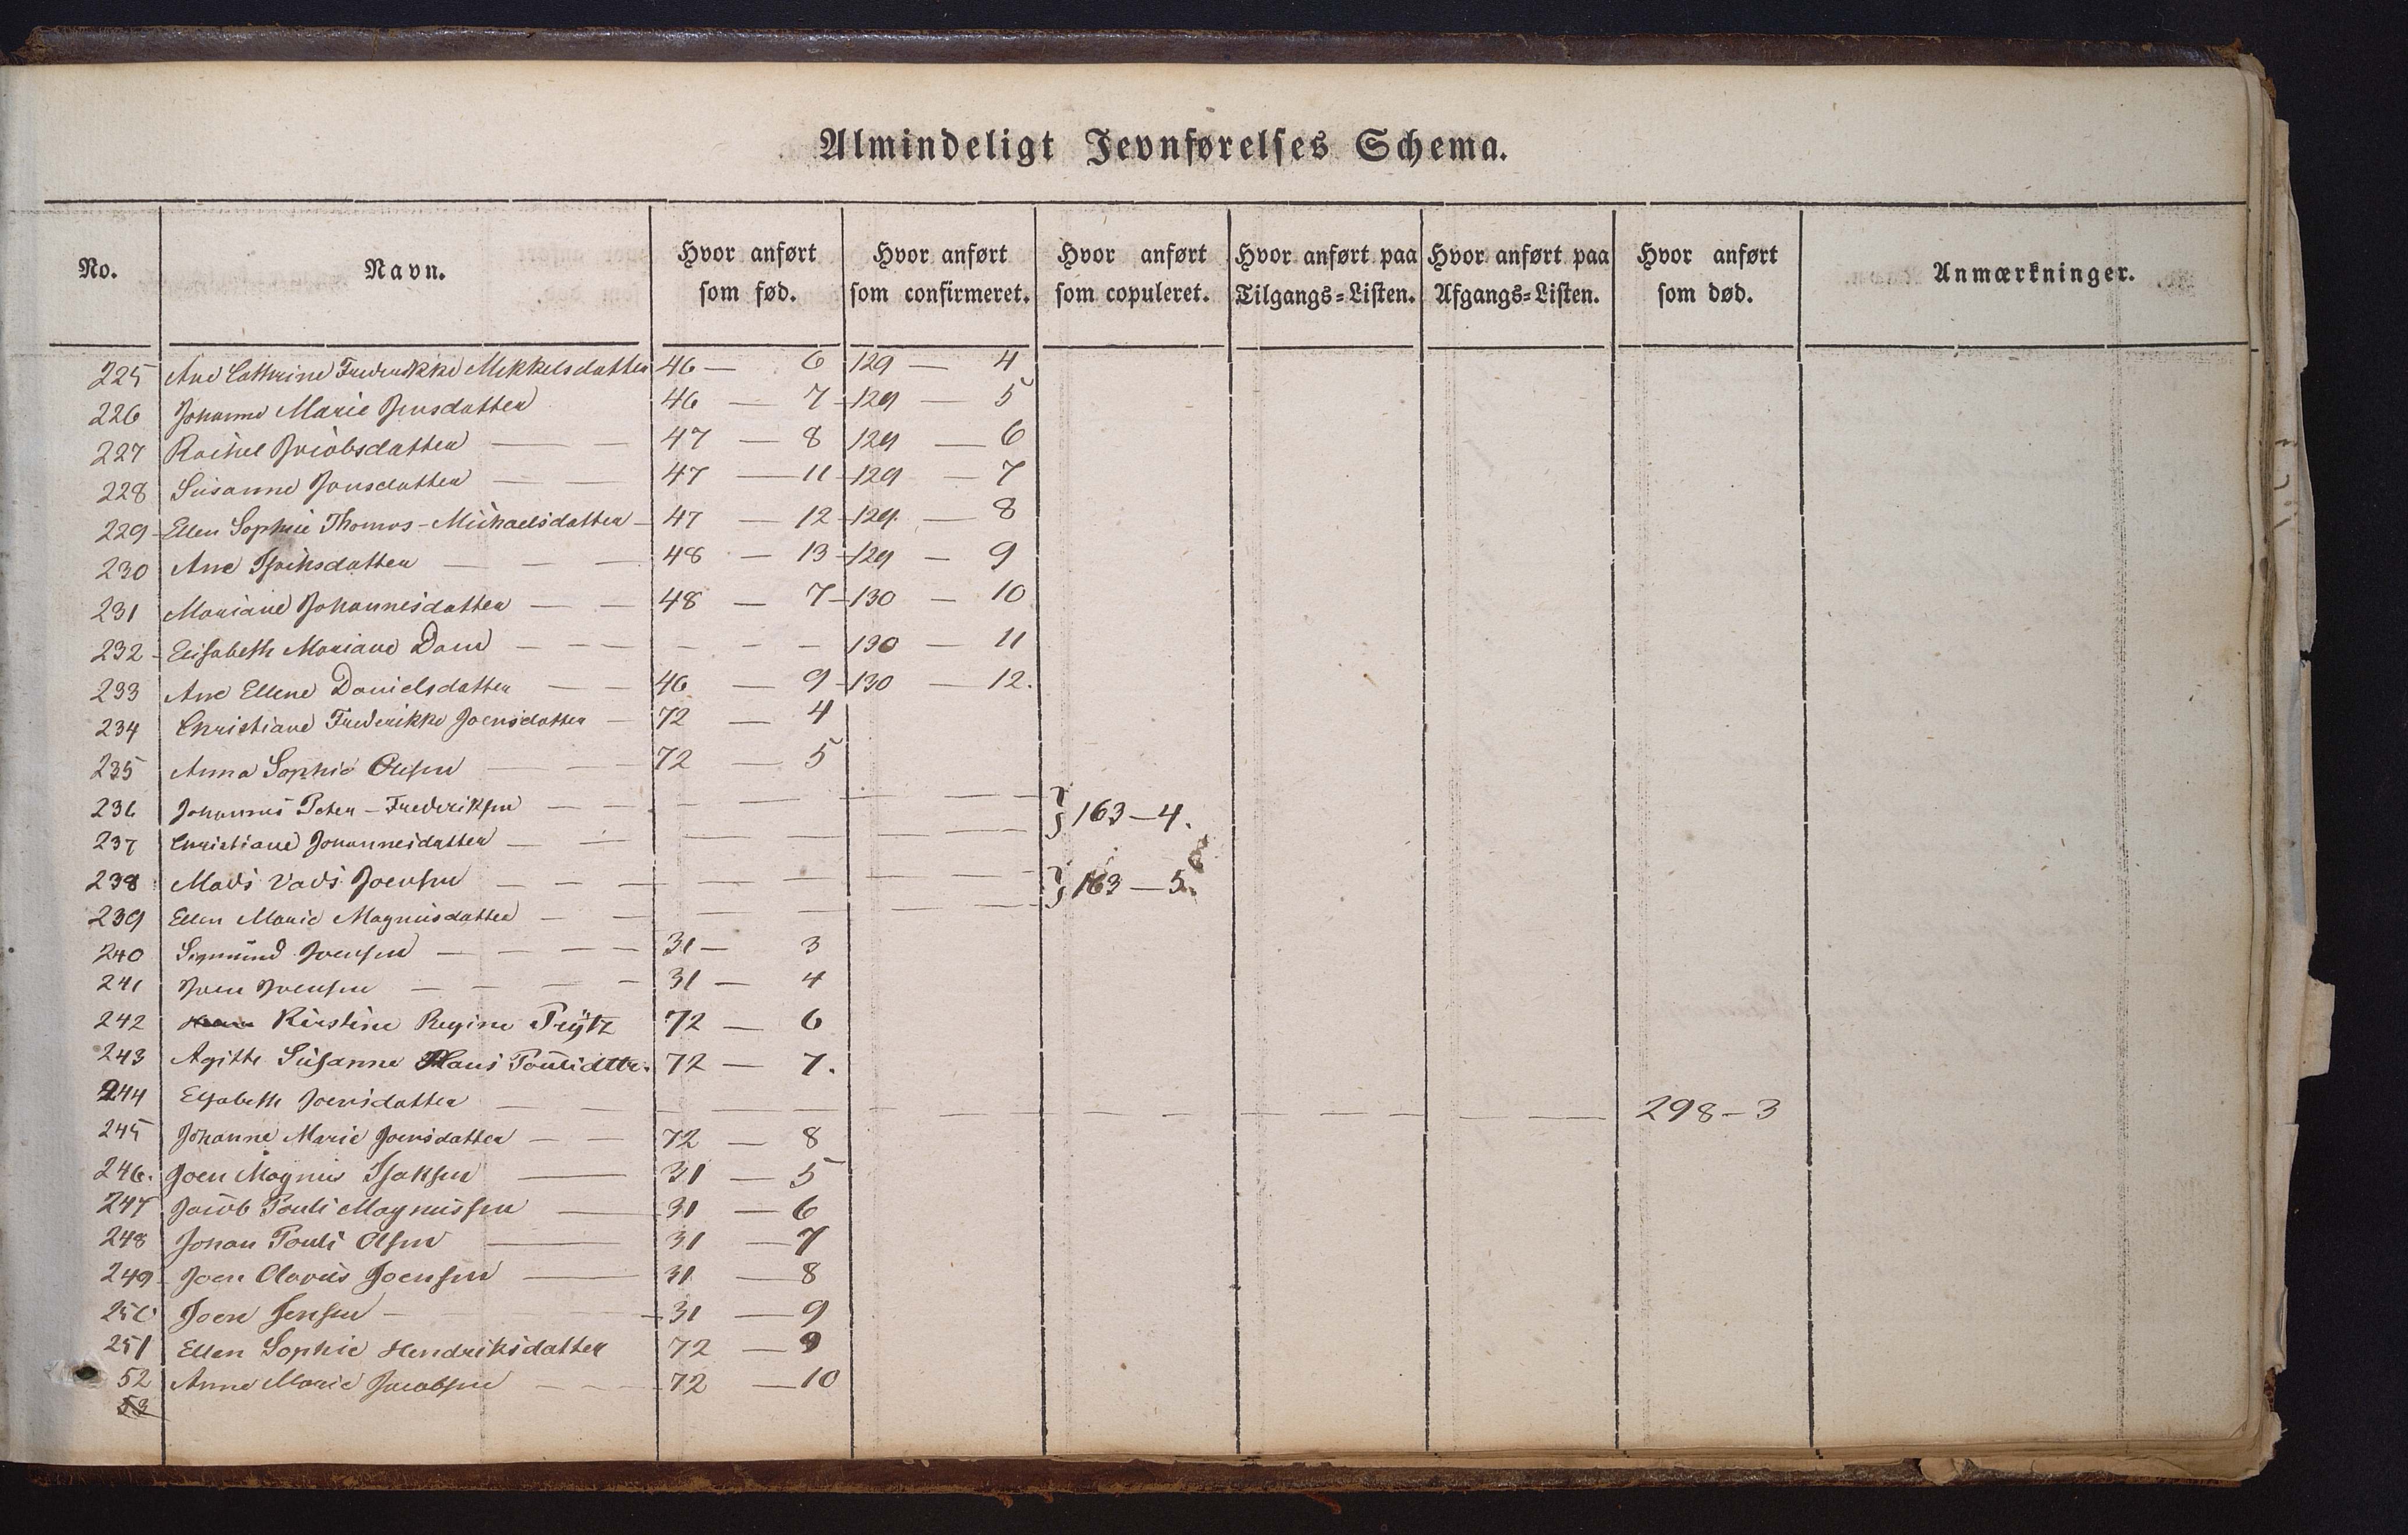 Almindeligt Jevnførelses Schema.
No. Navn. Hvor anført som fød. Hvor anført som confirmeret. Hvor anført som copuleret. Hvor anført paa Tilgangs-Listen. Hvor anført paa Afgangs-Listen. Hvor anført som død. Anmærkninger.
225 Ane Cathrine Frederikke Mikkelsdatter 46 — 6 129 — 4
226 Johanne Marie Jensdatter 46 — 7 129 — 5
227 Rachel Jacobsdatter — — 47 — 8 129 — 6
228 Susanne Jonsdatter — — 47 — 11 129 — 7
229 Ellen Sophie Thomas-Michaelsdatter — 47 — 12 129 — 8
230 Ane Isachsdatter — — — 48 — 13 129 — 9
231 Mariane Johannesdatter — — 48 — 7 130 — 10
232 Elisabeth Mariane Dam — — — — — — 130 — 11
233 Ane Ellene Danielsdatter — — 46 — 9 130 — 12.
234 Christiane Frederikke Joensdatter — 72 — 4
235 Anna Sophie Olesen — — 72 — 5
236 Johannes Peter-Frederiksen — — — — — — —
} 163 — 4.
237 Christiane Johannesdatter — — — — — — —
238 Mads Vads Joensen — — — — — — — —
} 163 — 5.
239 Ellen Marie Magnusdatter — — — — — — —
240 Sigmund Joensen — — — — 31 — 3
241 Joen Joensen — — — — 31 — 4
242 Kirstine Regine Trÿtz 72 — 6
243 Agithe Susanne Hans Poulidttr. 72 — 7.
244 Elsabeth Joensdatter — — — — — — — — — — — — — — 298 — 3
245 Johanne Marie Joensdatter — — 72 — 8
246. Joen Magnus Isaksen — 31 — 5
247 Jacob Pouli Magnussen — 31 — 6
248 Johan Pouli Olsen — 31 — 7
249 Joen Clovus Joensen — 31 — 8
250 Joen Jensen — 31 — 9
251 Ellen Sophie Hendriksdatter 72 — 9
52 Anne Marie Jacobsen — — — 72 — 10
53